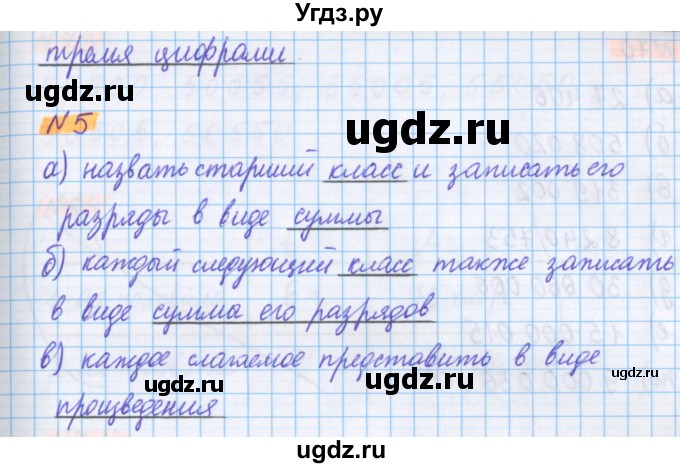 Угдз.ру
тремя цифрами.
ugdz.ru
ugdz.ru
№5
а) назвать старший класс и записать его
разряды в виде суммы
б) каждый следующий класс также записать
ugdz.ru
в виде сумма его разрядов
в) каждое слагаемое представить в виде
ugdz.ru
ugdz.ru
ugdz.ru
произведения
ugdz.ru
ugdz.ru